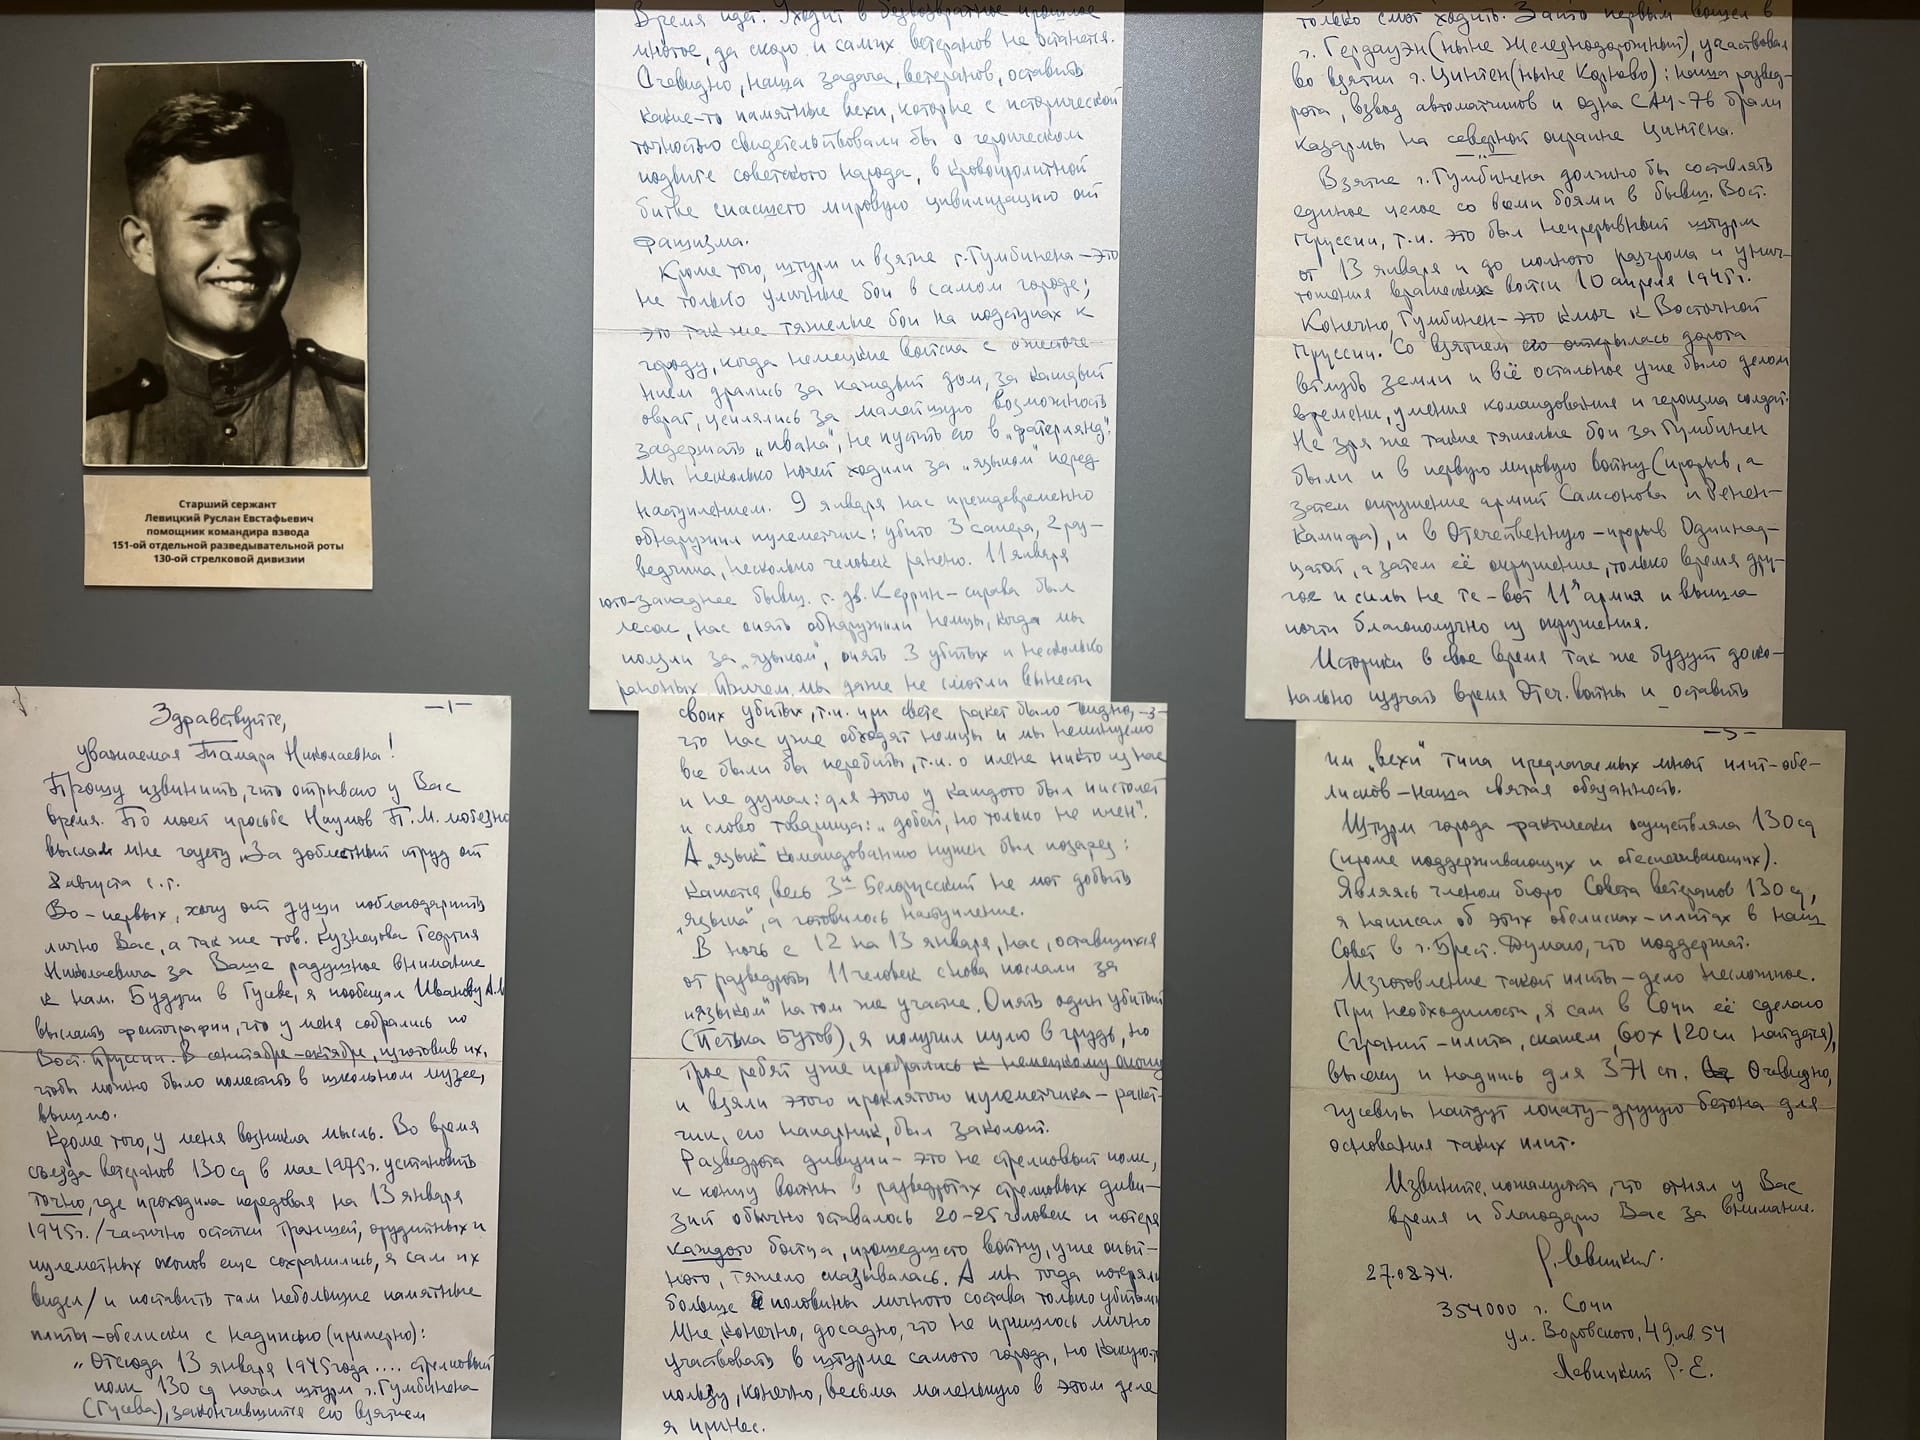 Старший сержант
Левицкий Руслан Евстафьевич
помощник командира взвода
151-ой отдельной разведывательной роты
130-ой стрелковой дивизии
-1-
Здравствуйте,
уважаемая Тамара Николаевна!
Прошу извинить, что отрываю у Вас
время. По моей просьбе Наумов П.М. любезно
выслал мне газету „За доблестный труд от
8 августа с.г.
Во-первых, хочу от души поблагодарить
лично Вас, а так же тов. Кузнецова Георгия
Николаевича за Ваше радушное внимание
к нам. Будучи в Гусеве, я пообещал Иванову А.И
выслать фотографии, что у меня собрались по
Вост. Пруссии. В сентябре-октябре, изготовив их,
чтобы можно было поместить в школьном музее,
вышлю.
Кроме того, у меня возникла мысль. Во время
съезда ветеранов 130 сд в мае 1975г. установить
точно, где проходила передовая на 13 января
1945г. /частично остатки траншей, орудийных и
пулеметных окопов еще сохранились, я сам их
видел/ и поставить там небольшие памятные
плиты-обелиски с надписью (примерно):
„Отсюда 13 января 1945 года .... стрелковый
полк 130 сд начал штурм г. Гумбинена
(Гусева), закончившийся его взятием
Время идет. Уходит в безвозвратное прошлое
многое, да скоро и самих ветеранов не останется.
Очевидно, наша задача, ветеранов, оставить
какие-то памятные вехи, которые с исторической
точностью свидетельствовали бы о героическом
подвиге советского народа, в кровопролитной
битве спасшего мировую цивилизацию от
фашизма.
Кроме того, штурм и взятие г. Гумбинена - это
не только уличные бои в самом городе;
это так же тяжелые бои на подступах к
городу, когда немецкие войска с ожесточе-
нием дрались за каждый дом, за каждый
овраг, цеплялись за малейшую возможность
задержать „ивана", не пустить его в „фатерлянд".
Мы несколько ночей ходили за „языком" перед
наступлением. 9 января нас преждевременно
обнаружил пулеметчик: убито 3 сапера, 2 раз-
ведчика, несколько человек ранено. 11 января
юго-западнее бывш. г. дв. Керрин - справа был
лесок, нас опять обнаружили немцы, когда мы
ползли за „языком", опять 3 убитых и несколько
раненых. Причем, мы даже не смогли вынести
-3-
своих убитых, т.к. при свете ракет было видно,
что нас уже обходят немцы и мы неминуемо
все были бы перебиты, т.к. о плене никто из нас
и не думал: для этого у каждого был пистолет
и слово товарища: „добей, но только не плен".
А „язык" командованию нужен был позарез:
кажется, весь 3й Белорусский не мог добыть
„языка", а готовилось наступление.
В ночь с 12 на 13 января, нас, оставшихся
от разведроты 11 человек снова послали за
„языком" на том же участке. Опять один убитый
(Петька Бутов), я получил пулю в грудь, но
трое ребят уже пробрались к немецкому окопу
и взяли этого проклятого пулеметчика - ракет-
чик, его напарник, был заколот.
Разведрота дивизии - это не стрелковый полк,
к концу войны в разведротах стрелковых диви-
зий обычно оставалось 20-25 человек и потеря
каждого бойца, прошедшего войну, уже опыт-
ного, тяжело сказывалась. А мы тогда потеряли
больше половины личного состава только убитыми
Мне, конечно, досадно, что не пришлось лично
участвовать в штурме самого города, но какую-то
пользу, конечно, весьма маленькую в этом деле
я принес.
только смог ходить. Зато первым вошел в
г. Гердауэн (ныне Железнодорожный), участвовал
во взятии г. Цинтен (ныне Корнево): наша развед-
рота, взвод автоматчиков и одна САУ-76 брали
казармы на северной окраине Цинтена.
Взятие г. Гумбинена должно бы составлять
единое целое со всеми боями в бывш. Вост.
Пруссии, т.к. это был непрерывный штурм
от 13 января и до полного разгрома и унич-
тожения вражеских войск 10 апреля 1945г.
Конечно, Гумбинен - это ключ к Восточной
Пруссии. Со взятием его открылась дорога
вглубь земли и всё остальное уже было делом
времени, умения командования и героизма солдат.
Не зря же такие тяжелые бои за Гумбинен
были и в первую мировую войну (прорыв, а
затем окружение армий Самсонова и Ренен-
кампфа), и в Отечественную - прорыв Одиннад-
цатой, а затем её окружение, только время дру-
гое и силы не те - вот 11я армия и вышла
почти благополучно из окружения.
Историки в свое время так же будут доско-
нально изучать время Отеч. войны и оставить
-5-
им „вехи" типа предлагаемых мной плит-обе-
лисков - наша святая обязанность.
Штурм города фактически осуществляла 130 сд
(кроме поддерживающих и обеспечивающих).
Являясь членом бюро Совета ветеранов 130 сд,
я написал об этих обелисках-плитах в наш
Совет в г. Брест. Думаю, что поддержат.
Изготовление такой плиты - дело несложное.
При необходимости, я сам в Сочи её сделаю
(гранит-плита, скажем, 60х120 см найдется),
высеку и надпись для 371 сп. Очевидно,
гусевцы найдут лопату-другую бетона для
основания таких плит.
Извините, пожалуйста, что отнял у Вас
время и благодарю Вас за внимание.
Р. Левицкий.
27.08.74.
354000 г. Сочи
ул. Воровского, 49, кв. 54
Левицкий Р.Е.